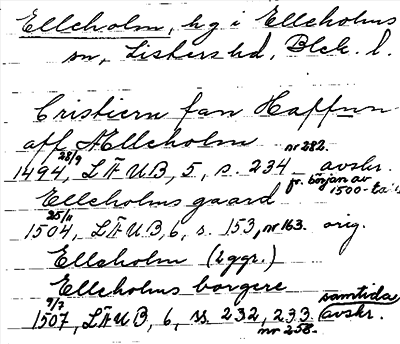 Elleholm, hg i Elleholms
sn, Listers hd, Blek. l.
Cristiern fan Haffwn
aff AElleholm nr 282.
28/9
1494, LÄUB, 5, s. 234 avskr.
fr. början av
1500-ta
Elleholms gaard
25/11
1504, LÄUB, 6, s. 153, nr 163. orig.
Elleholm (2 ggr.)
Elleholms borgere
9/7
1507, LÄUB, 6, ss 232, 233 samtida
avskr.
nr 258